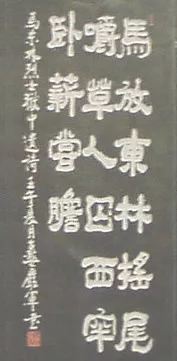 馬放東林搖尾
嚼草人囚西牢
卧薪嘗膽
馬東林烈士獄中遺詩壬午夏月嚴軍書